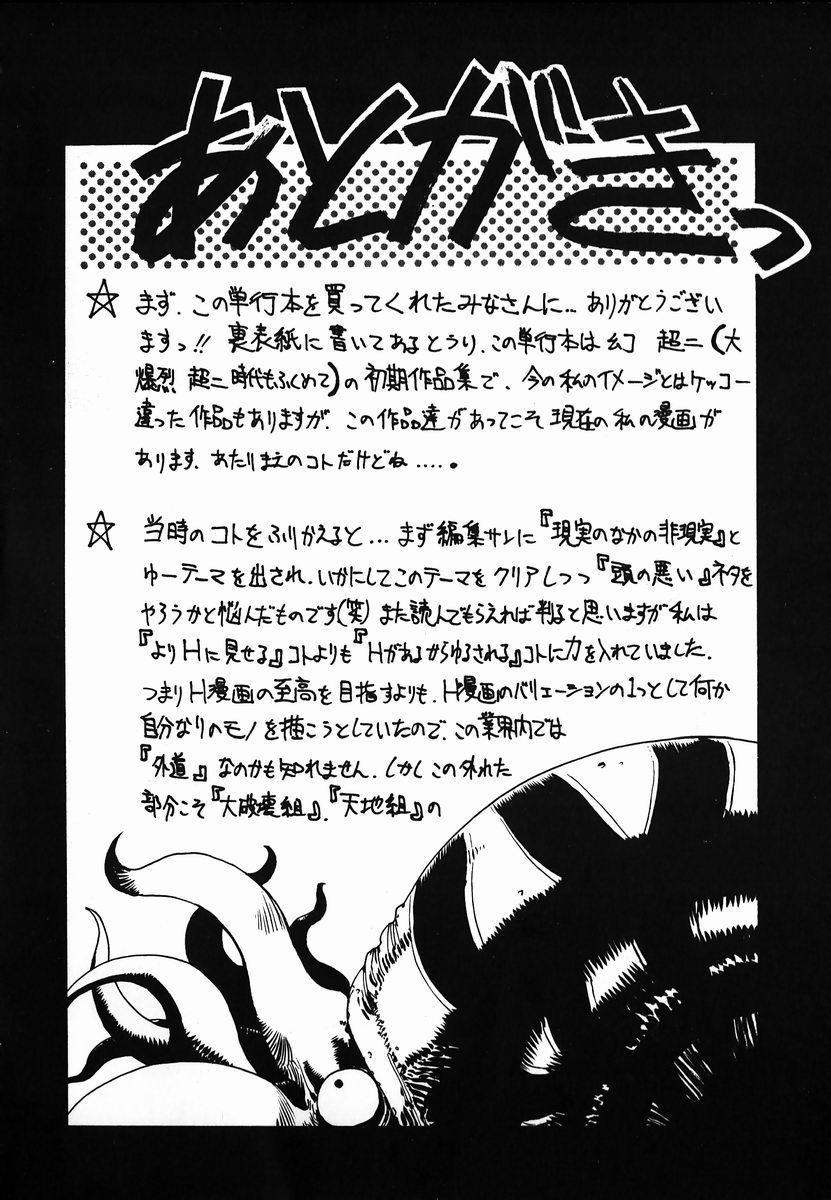 あとがきっ
☆ まず、この単行本を買ってくれたみなさんに… ありがとうござい
ますっ!! 裏表紙に書いてあるとうり、この単行本は幻 超二(大
爆烈 超二時代もふくめて)の初期作品集で、今の私のイメージとはケッコー
違った作品もありますが、この作品達があってこそ現在の私の漫画が
あります、あたりまえのコトだけどね….。
☆ 当時のコトをふりかえると…まず編集サンに『現実のなかの非現実』と
ゆーテーマを出され、いかにしてこのテーマをクリアしつつ『頭の悪い』ネタを
やろうかと悩んだものです(笑)また読んでもらえれば判ると思いますが私は
『よりHに見せる』コトよりも『Hがあるからゆるされる』コトに力を入れていました.
つまりH漫画の至高を目指すよりも、H漫画のバリエーションの1つとして何か
自分なりのモノを描こうとしていたので、この業界内では
『外道』なのかも知れません.しかしこの外れた
部分こそ『大破壊組』、『天地組』の